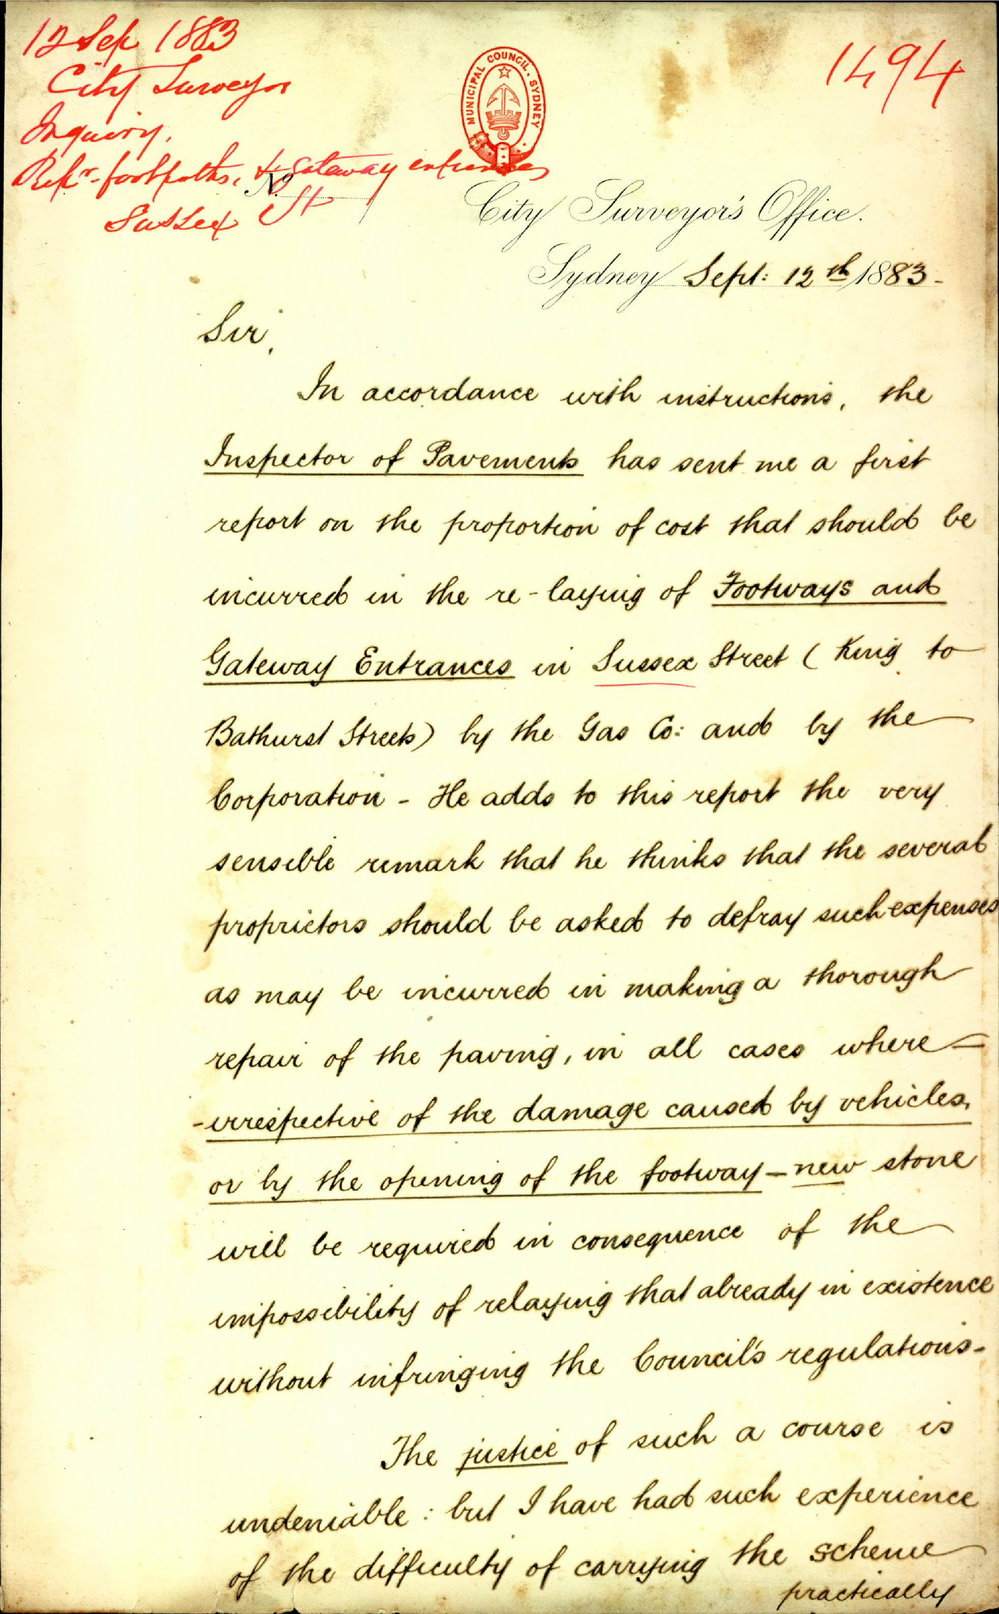 12 Sep 1883
City Surveyor
Inquiry.
Rep<sup>r</sup>. footpaths, & gateway entrances
Sussex St
1494
MUNICIPAL COUNCIL. SYDNEY
No
City Surveyor's Office.
Sydney Sept: 12th 1883.
Sir,
In accordance with instructions, the
Inspector of Pavements has sent me a first
report on the proportion of cost that should be
incurred in the re-laying of Footways and
Gateway Entrances in Sussex Street (King to
Bathurst Streets) by the Gas Co: and by the
Corporation - He adds to this report the very
sensible remark that he thinks that the several
proprietors should be asked to defray such expenses
as may be incurred in making a thorough
repair of the paving, in all cases where -
- irrespective of the damage caused by vehicles,
or by the opening of the footway - new stone
will be required in consequence of the
impossibility of relaying that already in existence
without infringing the Council's regulations -
The justice of such a course is
undeniable : but I have had such experience
of the difficulty of carrying the scheme
practically